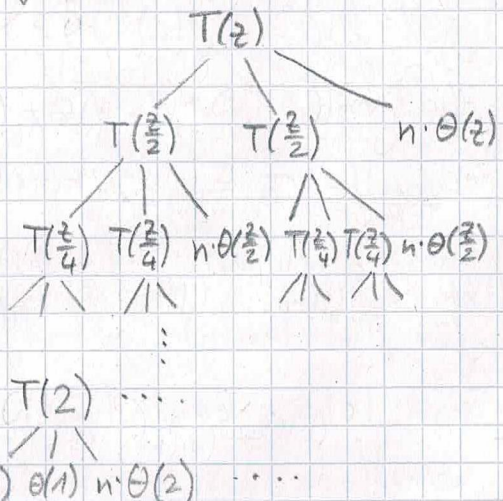 T(z)
T(z/2) T(z/2) n·Θ(z)
T(z/4) T(z/4) n·Θ(z/2) T(z/4) T(z/4) n·Θ(z/2)
⋮
T(2) ·····
) Θ(1) n·Θ(2) ····